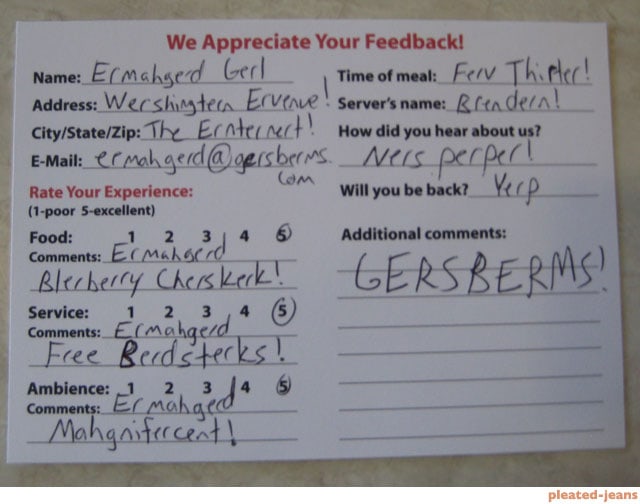 We Appreciate Your Feedback!
Name: Ermahgerd Gerl
Address: Wershingtern Ervenue!
City/State/Zip: The Ernternert!
E-Mail: ermahgerd@gersberms.
com
Rate Your Experience:
(1-poor 5-excellent)
Food: 1 2 3 4 5
Comments: Ermahgerd
Blerberry Cherskerk!
Service: 1 2 3 4 5
Comments: Ermahgerd
Free Berdsterks!
Ambience: 1 2 3 4 5
Comments: Ermahgerd
Mahgnifercent!
Time of meal: Ferv Thirter!
Server's name: Brendern!
How did you hear about us?
Ners perper!
Will you be back? Yerp
Additional comments:
GERSBERMS!
pleated-jeans